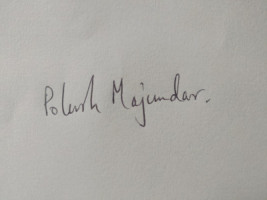 Polash Majumdar.